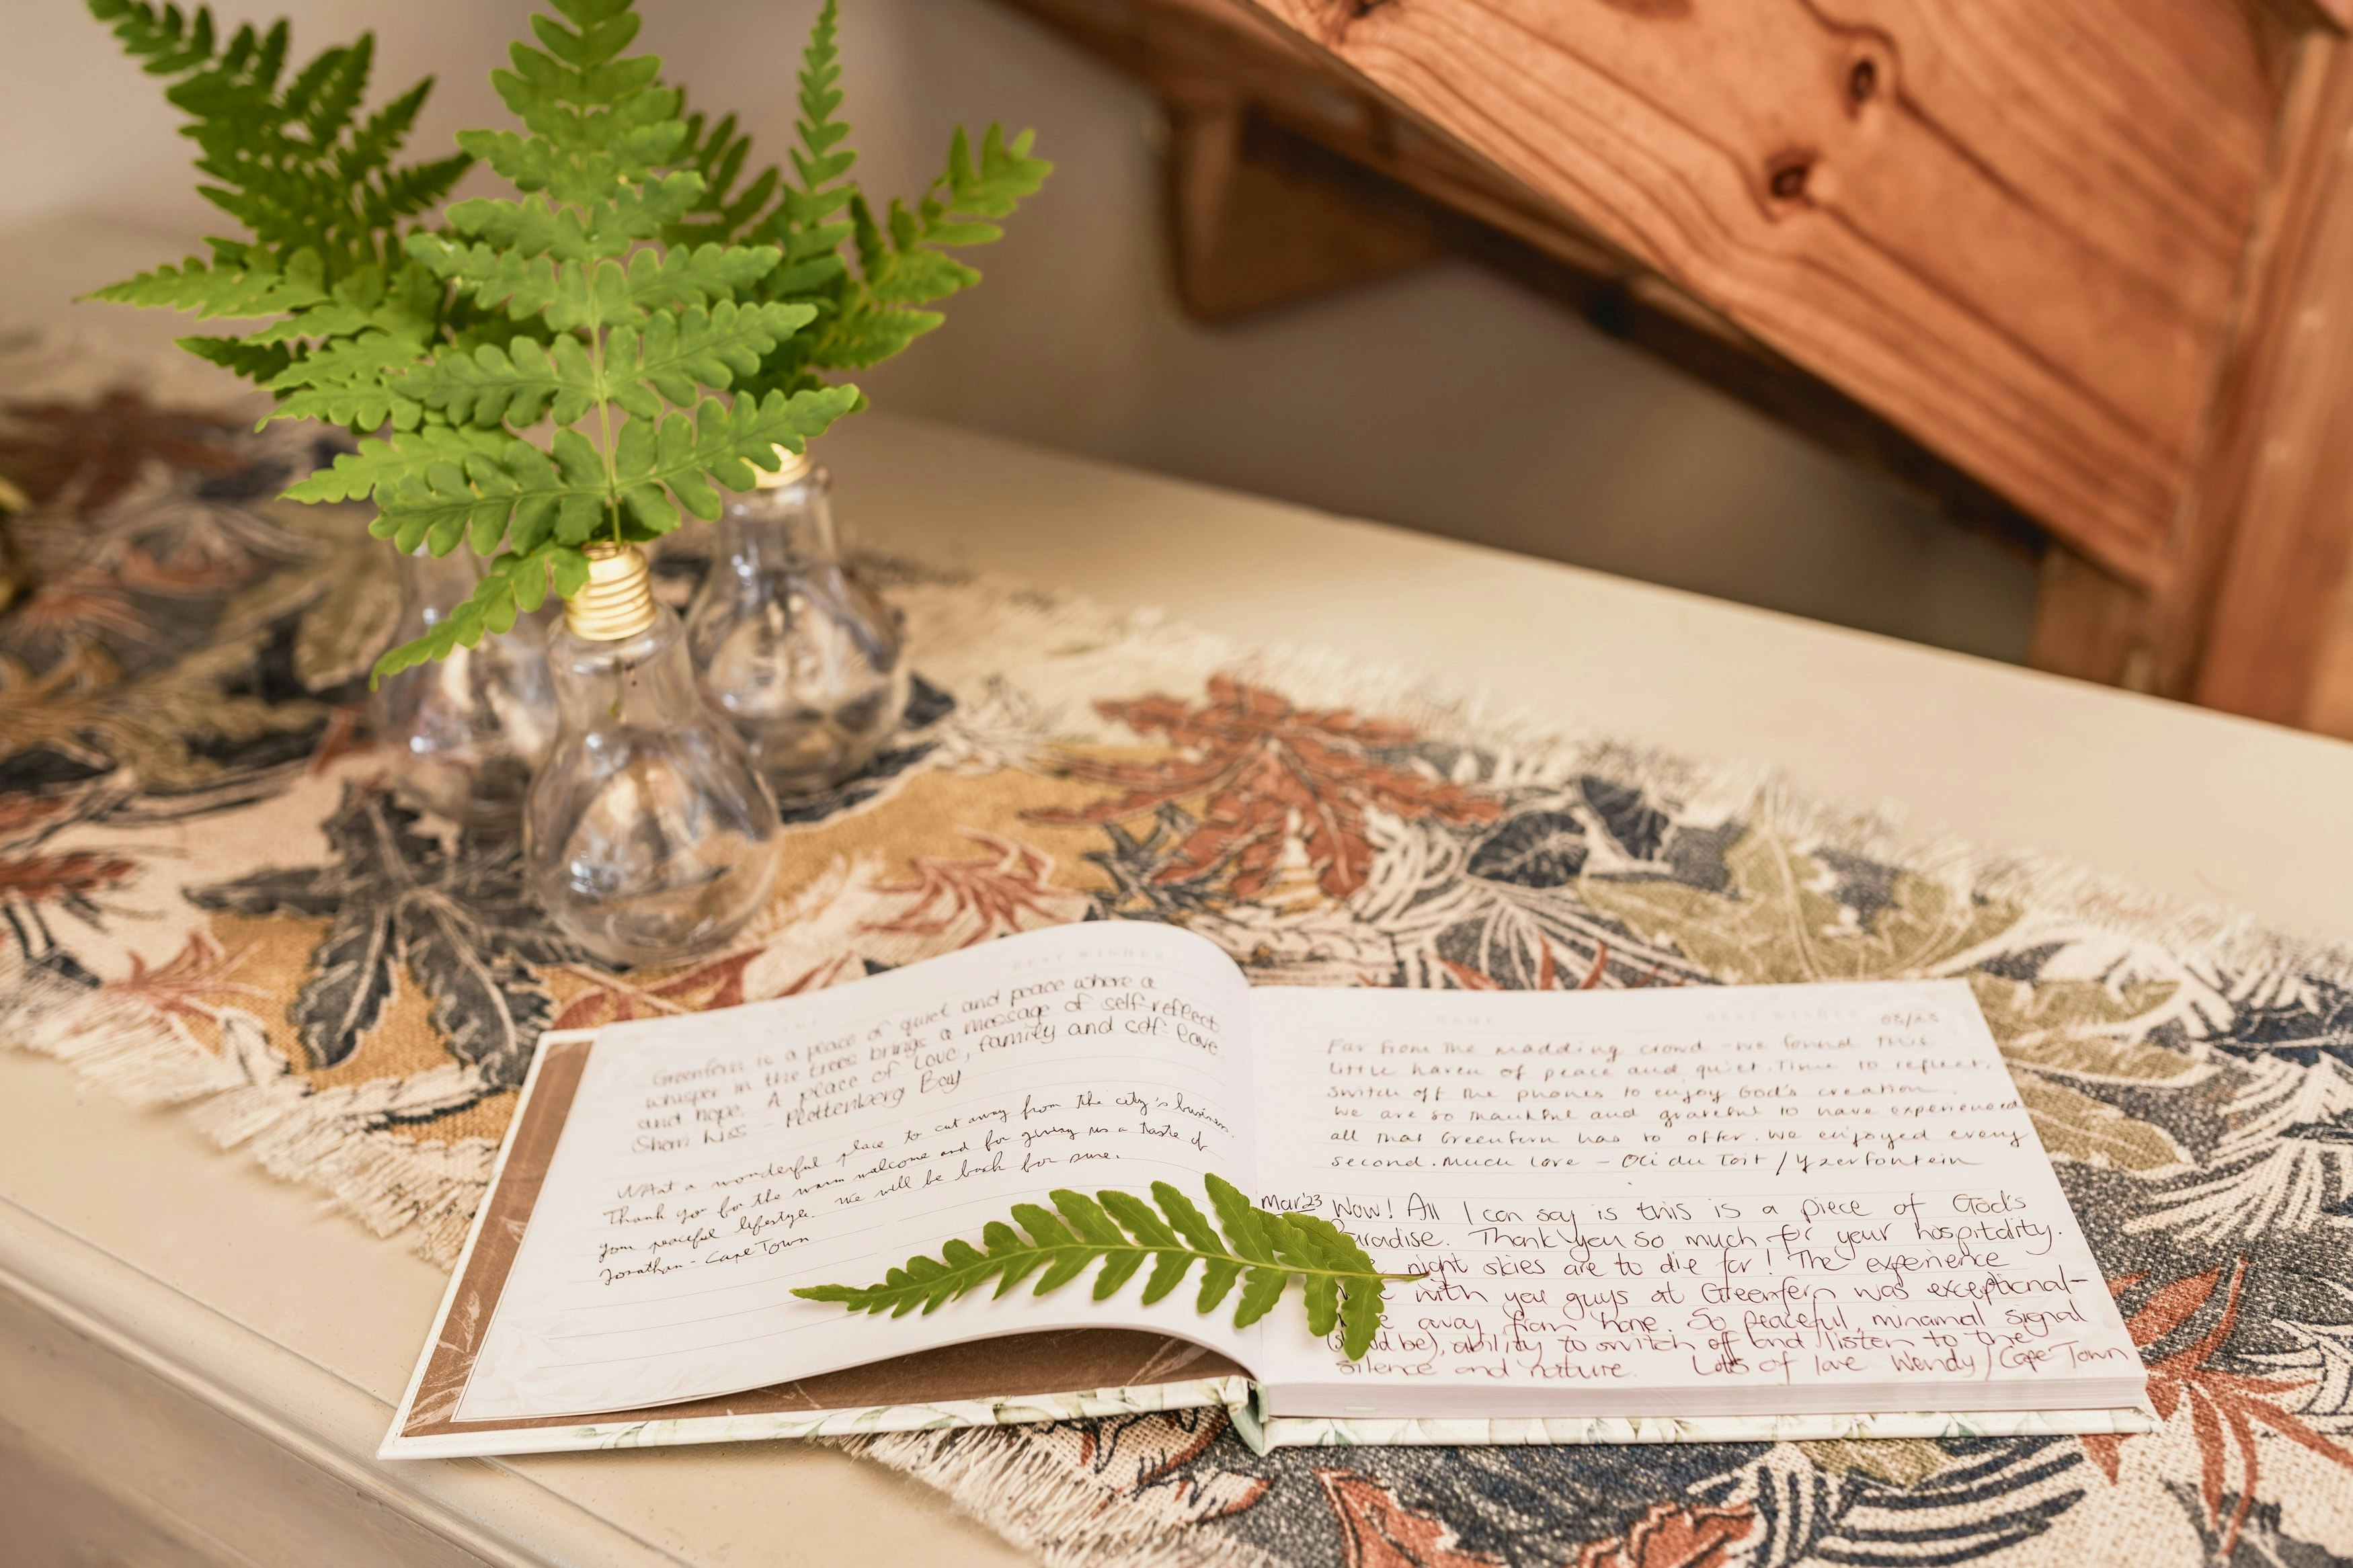 BEST WISHES
Greenfern is a place of quiet and peace where a
whisper in the trees brings a message of self-reflect
and hope. A place of love, family and self love
Sheri Kiss - Plettenberg Bay
What a wonderful place to cut away from the city's business.
Thank you for the warm welcome and for giving us a taste of
your peaceful lifestyle. We will be back for sure.
Jonathan - Cape Town
NAME
BEST WISHES
03/23
Far from the madding crowd - we found this
little haven of peace and quiet. Time to reflect,
switch off the phones to enjoy God's creation.
We are so thankful and grateful to have experienced
all that Greenfern has to offer. We enjoyed every
second. Much love - Oli du Toit / Yzerfontein
Mar'23 Wow! All I can say is this is a piece of God's
Paradise. Thank you so much for your hospitality.
night skies are to die for! The experience
with you guys at Greenfern was exceptional -
away from home. So peaceful, minamal signal
be), ability to switch off and listen to the
silence and nature. Lots of love Wendy / Cape Town